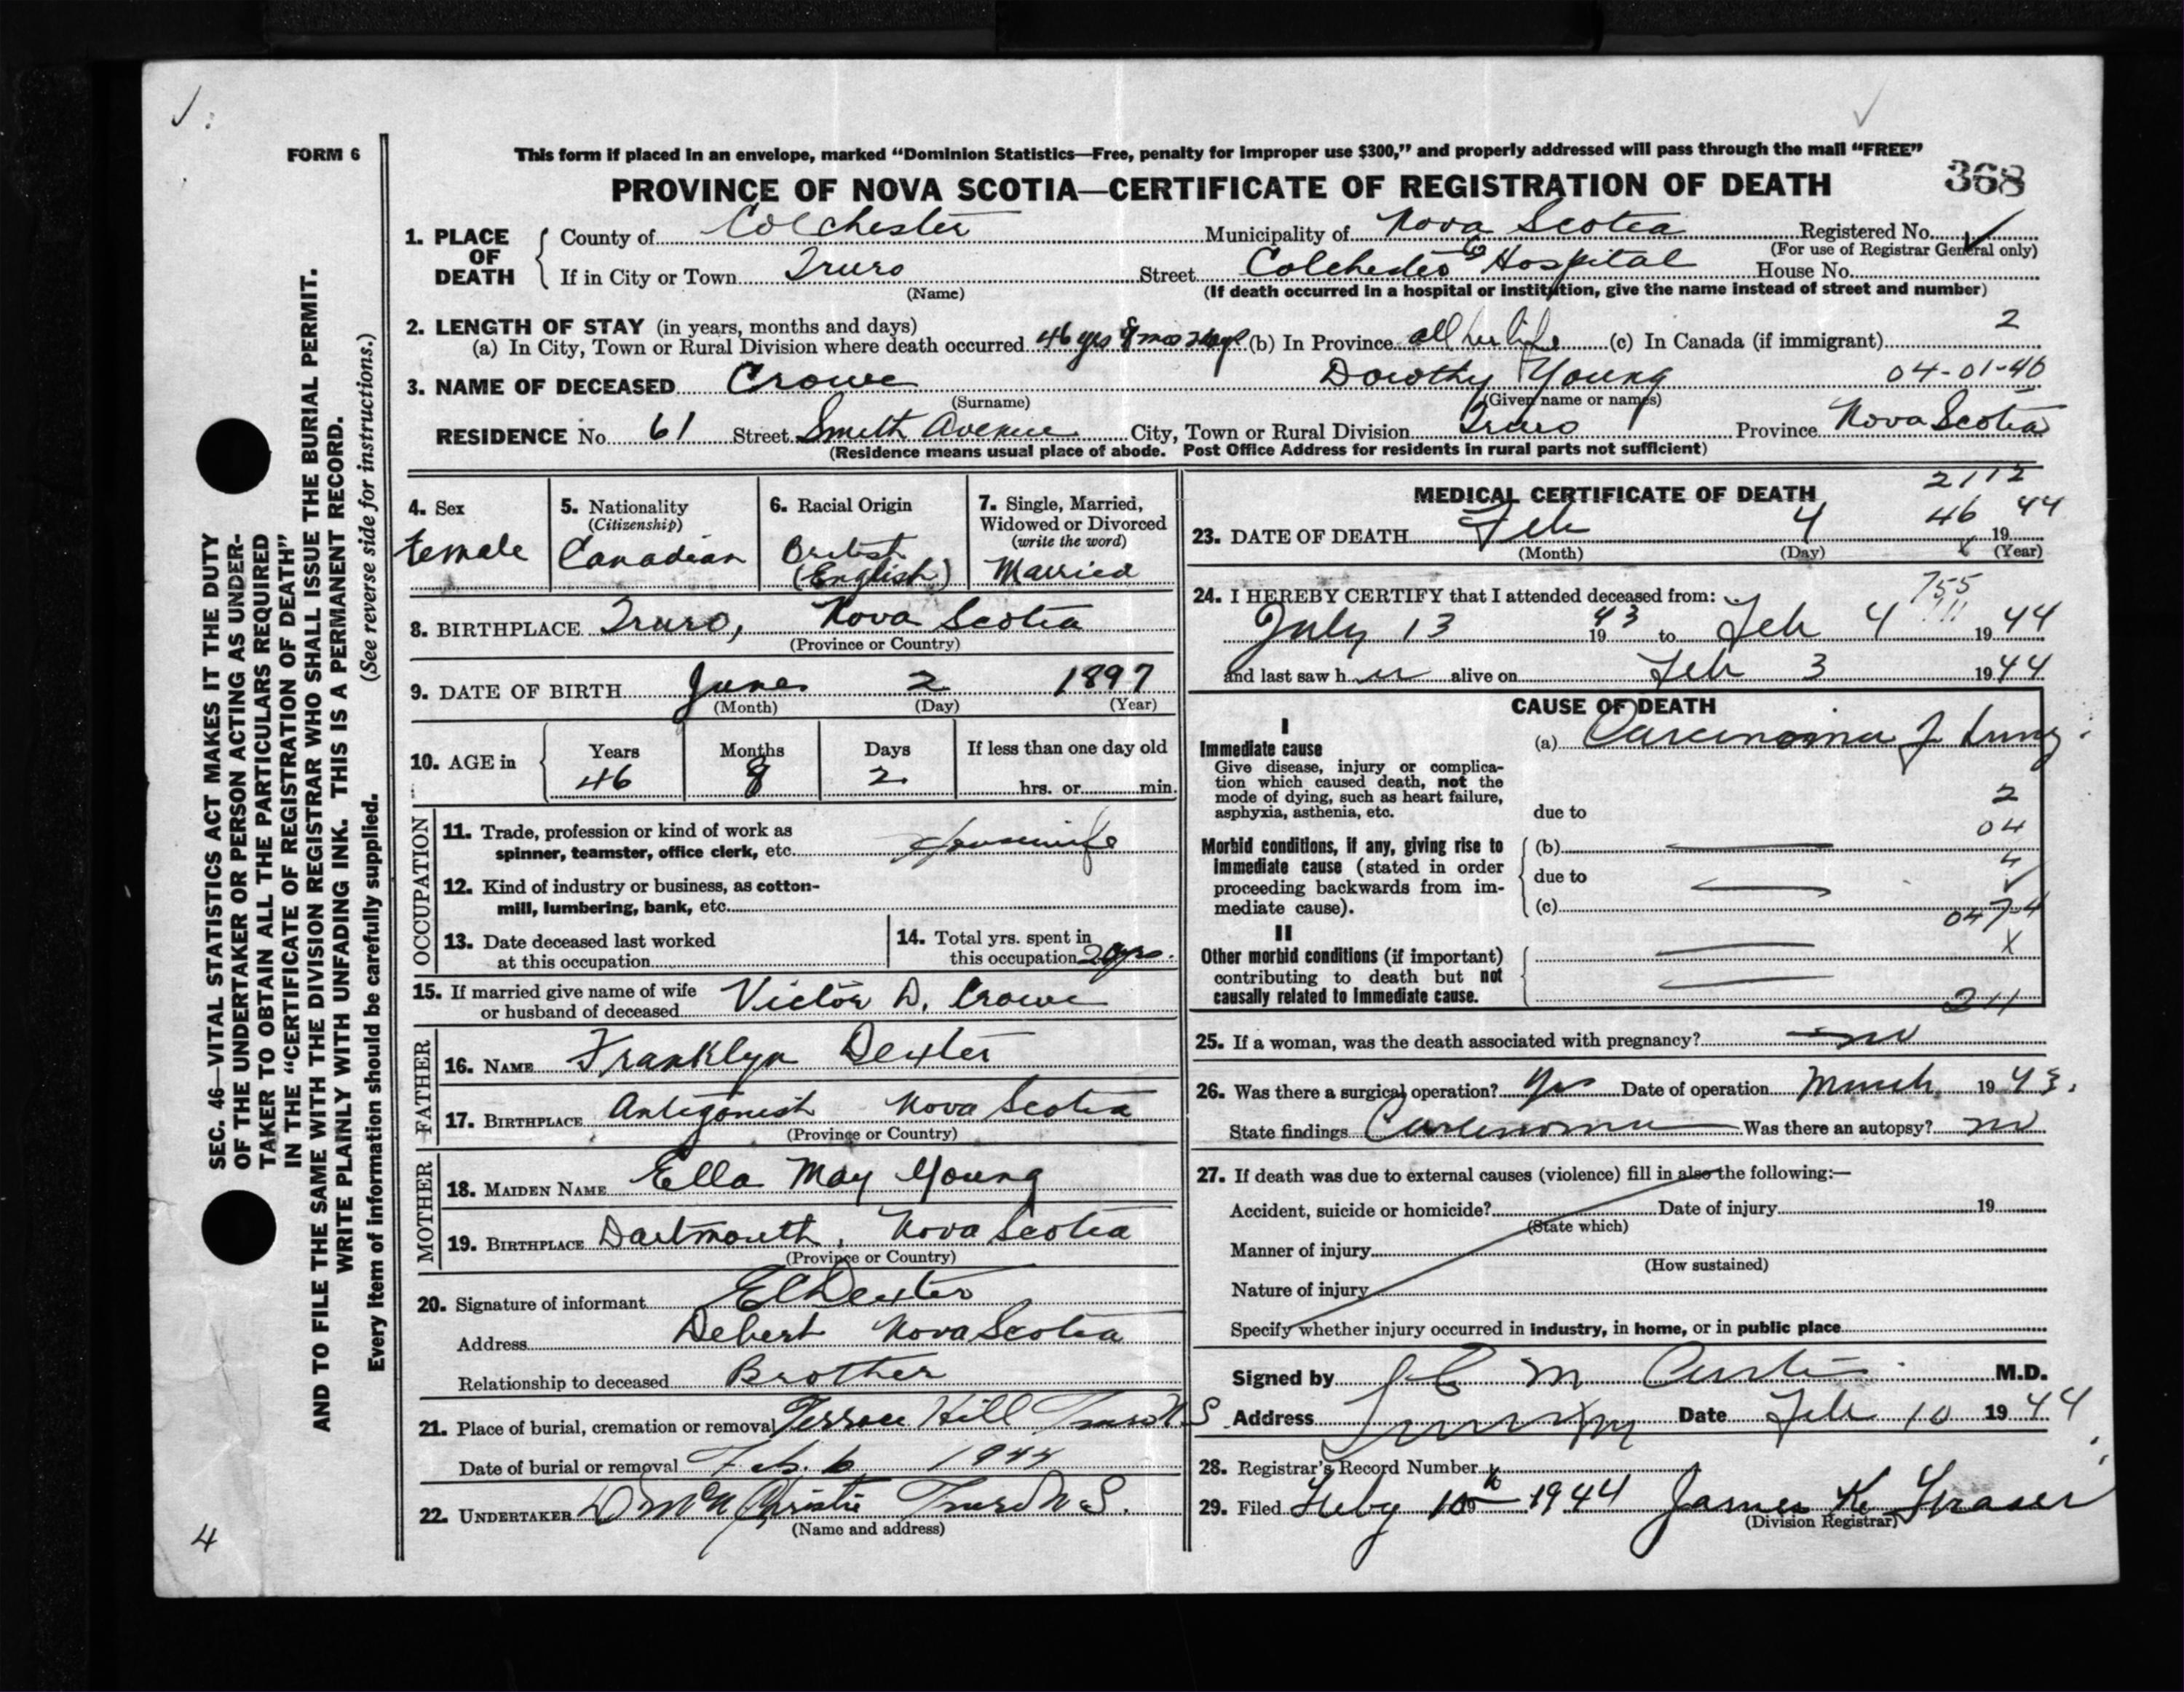 FORM 6
This form if placed in an envelope, marked “Dominion Statistics—Free, penalty for improper use $300,” and properly addressed will pass through the mail “FREE”
PROVINCE OF NOVA SCOTIA—CERTIFICATE OF REGISTRATION OF DEATH
368
1. PLACE OF DEATH
County of Colchester Municipality of Nova Scotia Registered No. ✓
(For use of Registrar General only)
If in City or Town Truro Street Colchester Co Hospital House No.
(Name) (If death occurred in a hospital or institution, give the name instead of street and number)
2. LENGTH OF STAY (in years, months and days) 2
(a) In City, Town or Rural Division where death occurred 46 yrs 8 mos 2 days (b) In Province all her life (c) In Canada (if immigrant)
3. NAME OF DECEASED Crowe Dorothy Young 04-01-40
(Surname) (Given name or names)
RESIDENCE No. 61 Street Smith Avenue City, Town or Rural Division Truro Province Nova Scotia
(Residence means usual place of abode. Post Office Address for residents in rural parts not sufficient)
4. Sex
female
5. Nationality
(Citizenship)
Canadian
6. Racial Origin
British
(English)
7. Single, Married,
Widowed or Divorced
(write the word)
Married
8. BIRTHPLACE Truro, Nova Scotia
(Province or Country)
9. DATE OF BIRTH June 2 1897
(Month) (Day) (Year)
10. AGE in
Years Months Days If less than one day old
46 8 2 hrs. or min.
OCCUPATION
11. Trade, profession or kind of work as
spinner, teamster, office clerk, etc. Housewife
12. Kind of industry or business, as cotton-
mill, lumbering, bank, etc.
13. Date deceased last worked
at this occupation
14. Total yrs. spent in
this occupation 20 yrs.
15. If married give name of wife
or husband of deceased Victor D. Crowe
FATHER
16. NAME Franklyn Dexter
17. BIRTHPLACE Antigonish Nova Scotia
(Province or Country)
MOTHER
18. MAIDEN NAME Ella May Young
19. BIRTHPLACE Dartmouth, Nova Scotia
(Province or Country)
20. Signature of informant Dexter
Address Debert Nova Scotia
Relationship to deceased Brother
21. Place of burial, cremation or removal Terrace Hill Truro N S
Date of burial or removal Feb. 6 1944
22. UNDERTAKER D McN Christie Truro N. S.
(Name and address)
MEDICAL CERTIFICATE OF DEATH
2112
46
23. DATE OF DEATH Feb 4 19 44
(Month) (Day) (Year)
24. I HEREBY CERTIFY that I attended deceased from: 755
July 13 19 43 to Feb 4 19 44
and last saw h er alive on Feb 3 19 44
CAUSE OF DEATH
I
Immediate cause
Give disease, injury or complica-
tion which caused death, not the
mode of dying, such as heart failure,
asphyxia, asthenia, etc.
(a) Carcinoma of Lung
due to
2
04
Morbid conditions, if any, giving rise to
immediate cause (stated in order
proceeding backwards from im-
mediate cause).
(b)
due to
(c)
4
047-4
II
Other morbid conditions (if important)
contributing to death but not
causally related to immediate cause.
X
211
25. If a woman, was the death associated with pregnancy? no
26. Was there a surgical operation? Yes Date of operation March 19 43.
State findings Carcinoma Was there an autopsy? no
27. If death was due to external causes (violence) fill in also the following:—
Accident, suicide or homicide? Date of injury 19
(State which)
Manner of injury
(How sustained)
Nature of injury
Specify whether injury occurred in industry, in home, or in public place
Signed by M Curtis M.D.
Address Truro Date Feb 10 19 44
28. Registrar's Record Number
29. Filed Feby 10th 1944 James K. Fraser
(Division Registrar)
SEC. 46—VITAL STATISTICS ACT MAKES IT THE DUTY
OF THE UNDERTAKER OR PERSON ACTING AS UNDER-
TAKER TO OBTAIN ALL THE PARTICULARS REQUIRED
IN THE “CERTIFICATE OF REGISTRATION OF DEATH”
AND TO FILE THE SAME WITH THE DIVISION REGISTRAR WHO SHALL ISSUE THE BURIAL PERMIT.
WRITE PLAINLY WITH UNFADING INK. THIS IS A PERMANENT RECORD.
Every item of information should be carefully supplied. (See reverse side for instructions.)
4